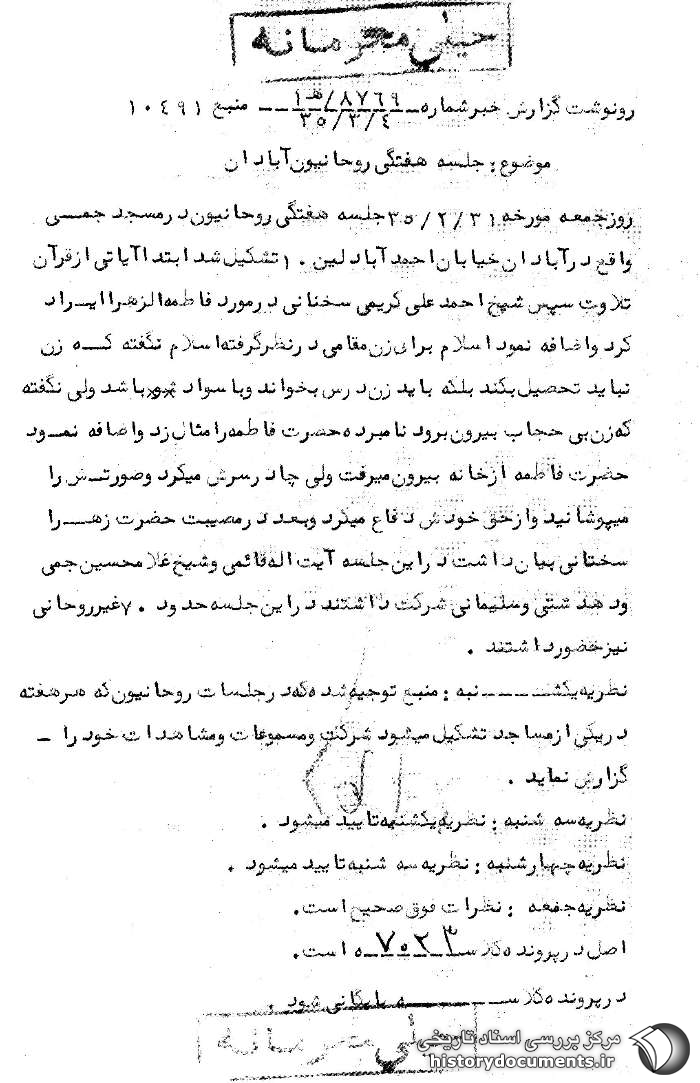 خیلی محرمانه
رونوشت گزارش خبر شماره ۸۷۶۹/هـ۱ منبع ۱۰۴۹۱
۳۵/۳/۴
موضوع : جلسه هفتگی روحانیون آبادان
روز جمعه مورخه ۳۵/۲/۳۱ جلسه هفتگی روحانیون در مسجد جمی
واقع در آبادان خیابان احمد آباد لین ۱۰ تشکیل شد ابتدا آیاتی از قرآن
تلاوت سپس شیخ احمد علی کریمی سخنانی در مورد فاطمه الزهرا ایراد
کرد واضافه نمود اسلام برای زن مقامی در نظر گرفته اسلام نگفته که زن
نباید تحصیل بکند بلکه باید زن درس بخواند وبا سواد باشد ولی نگفته
که زن بی حجاب بیرون برود نامبرده حضرت فاطمه را مثال زد واضافه نمود
حضرت فاطمه از خانه بیرون میرفت ولی چادر سرش میکرد وصورتش را
میپوشانید واز حق خودش دفاع میکرد وبعد در مصیبت حضرت زهرا
سخنانی بیان داشت در این جلسه آیت اله قائمی وشیخ غلامحسین جمی
ودهدشتی وسلیمانی شرکت داشتند در این جلسه حدود ۷۰ غیر روحانی
نیز حضور داشتند .
نظریه یکشنبه : منبع توجیه شده که در جلسات روحانیون که هر هفته
در یکی از مساجد تشکیل میشود شرکت ومسموعات ومشاهدات خود را -
گزارش نماید .
نظریه سه شنبه : نظریه یکشنبه تایید میشود .
نظریه چهارشنبه : نظریه سه شنبه تایید میشود .
نظریه جمعه : نظرات فوق صحیح است.
اصل در پرونده کلاسه ۷۰۲۳ است.
در پرونده کلاسه بایگانی شود .
خیلی محرمانه
مرکز بررسی اسناد تاریخی
historydocuments.ir